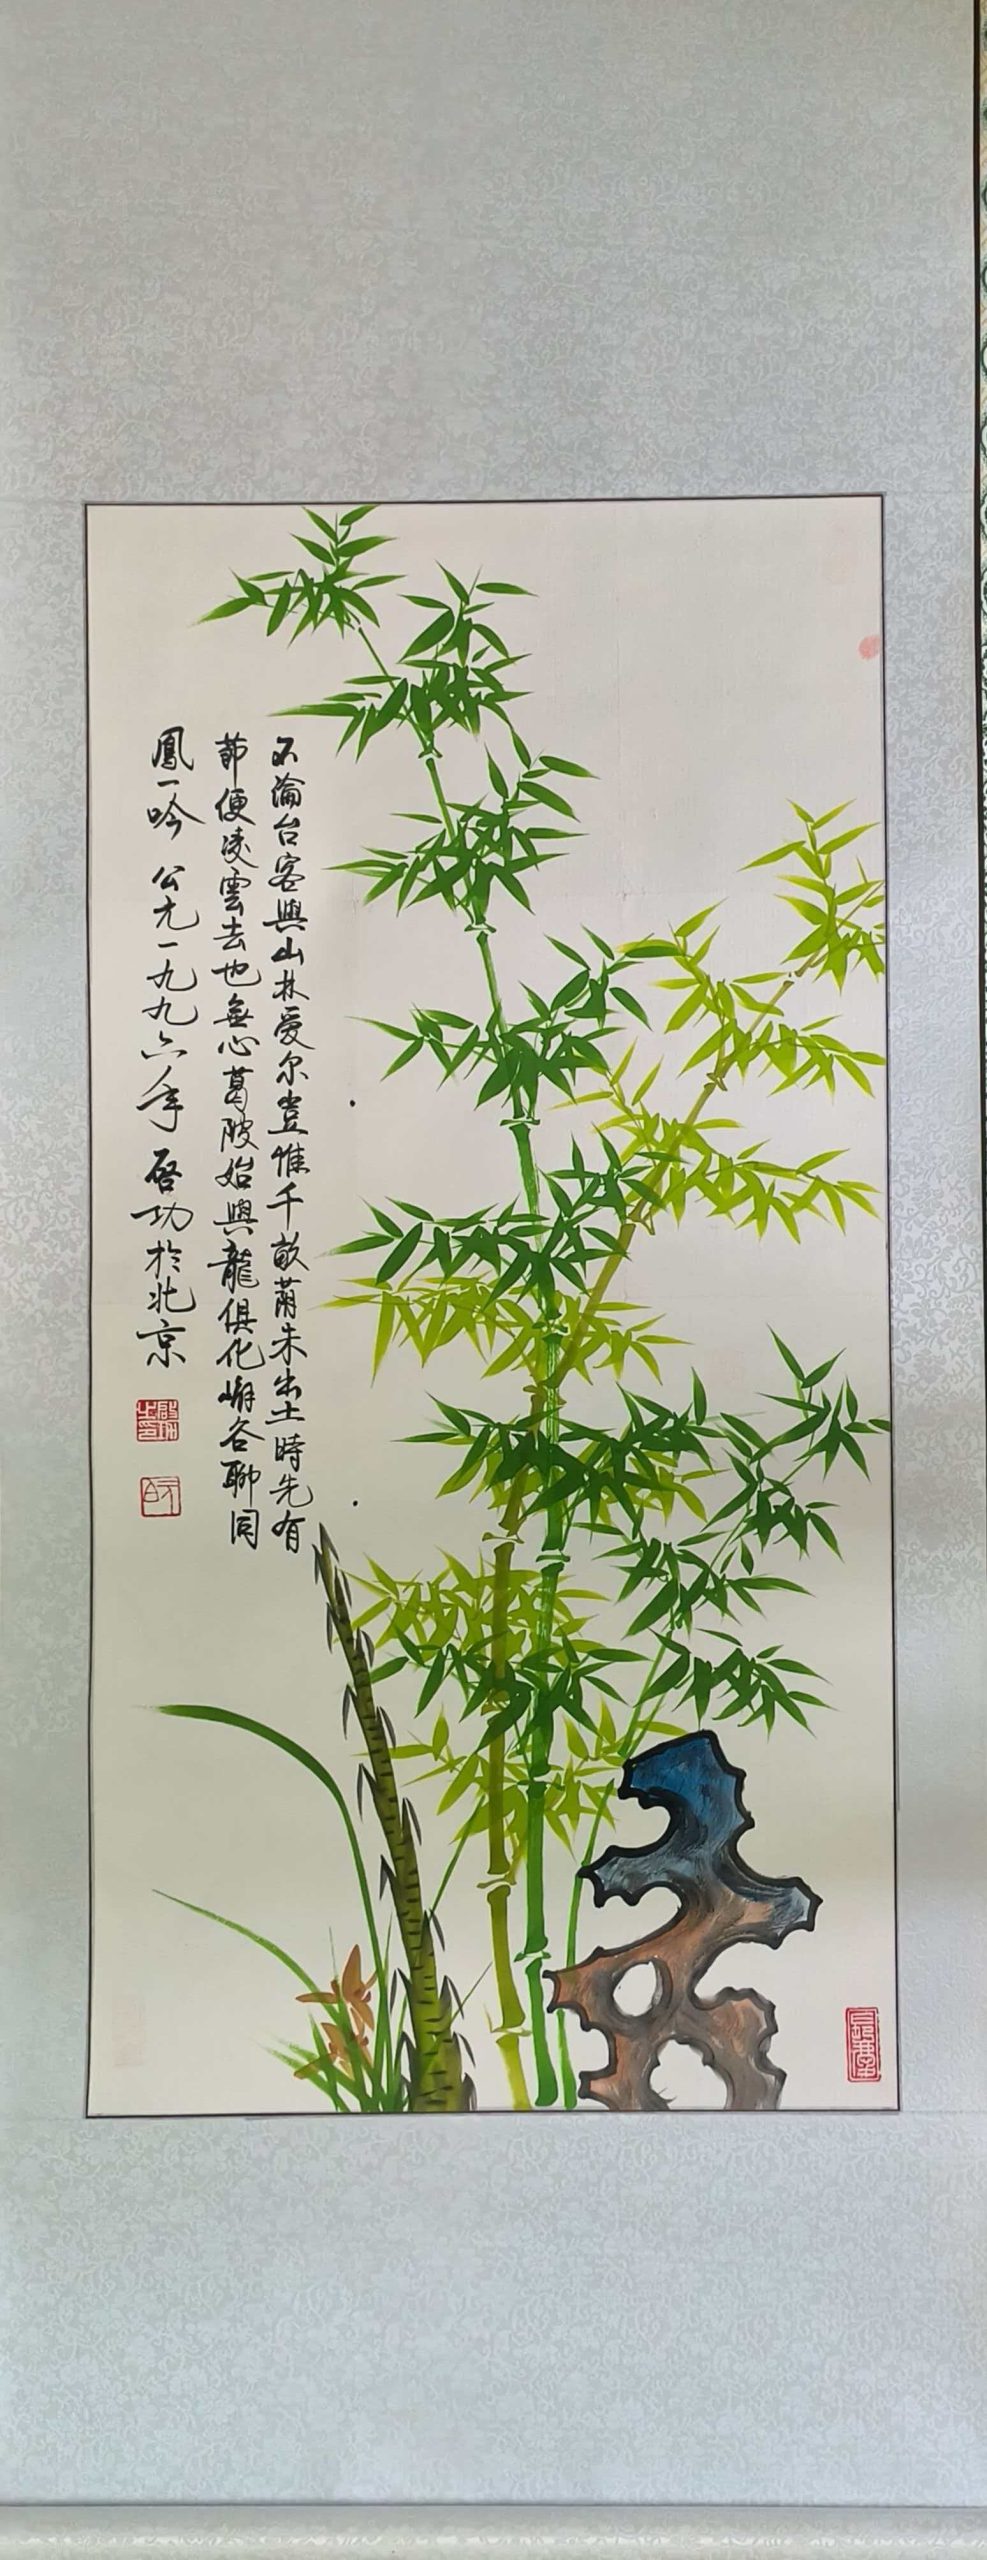 不論台客與山林爱尔豈惟千畝蔭未出土時先有
節便凌雲去也無心葛陂始與龍俱化嶰谷聊同
鳳一吟 公元一九九六年 啓功於北京